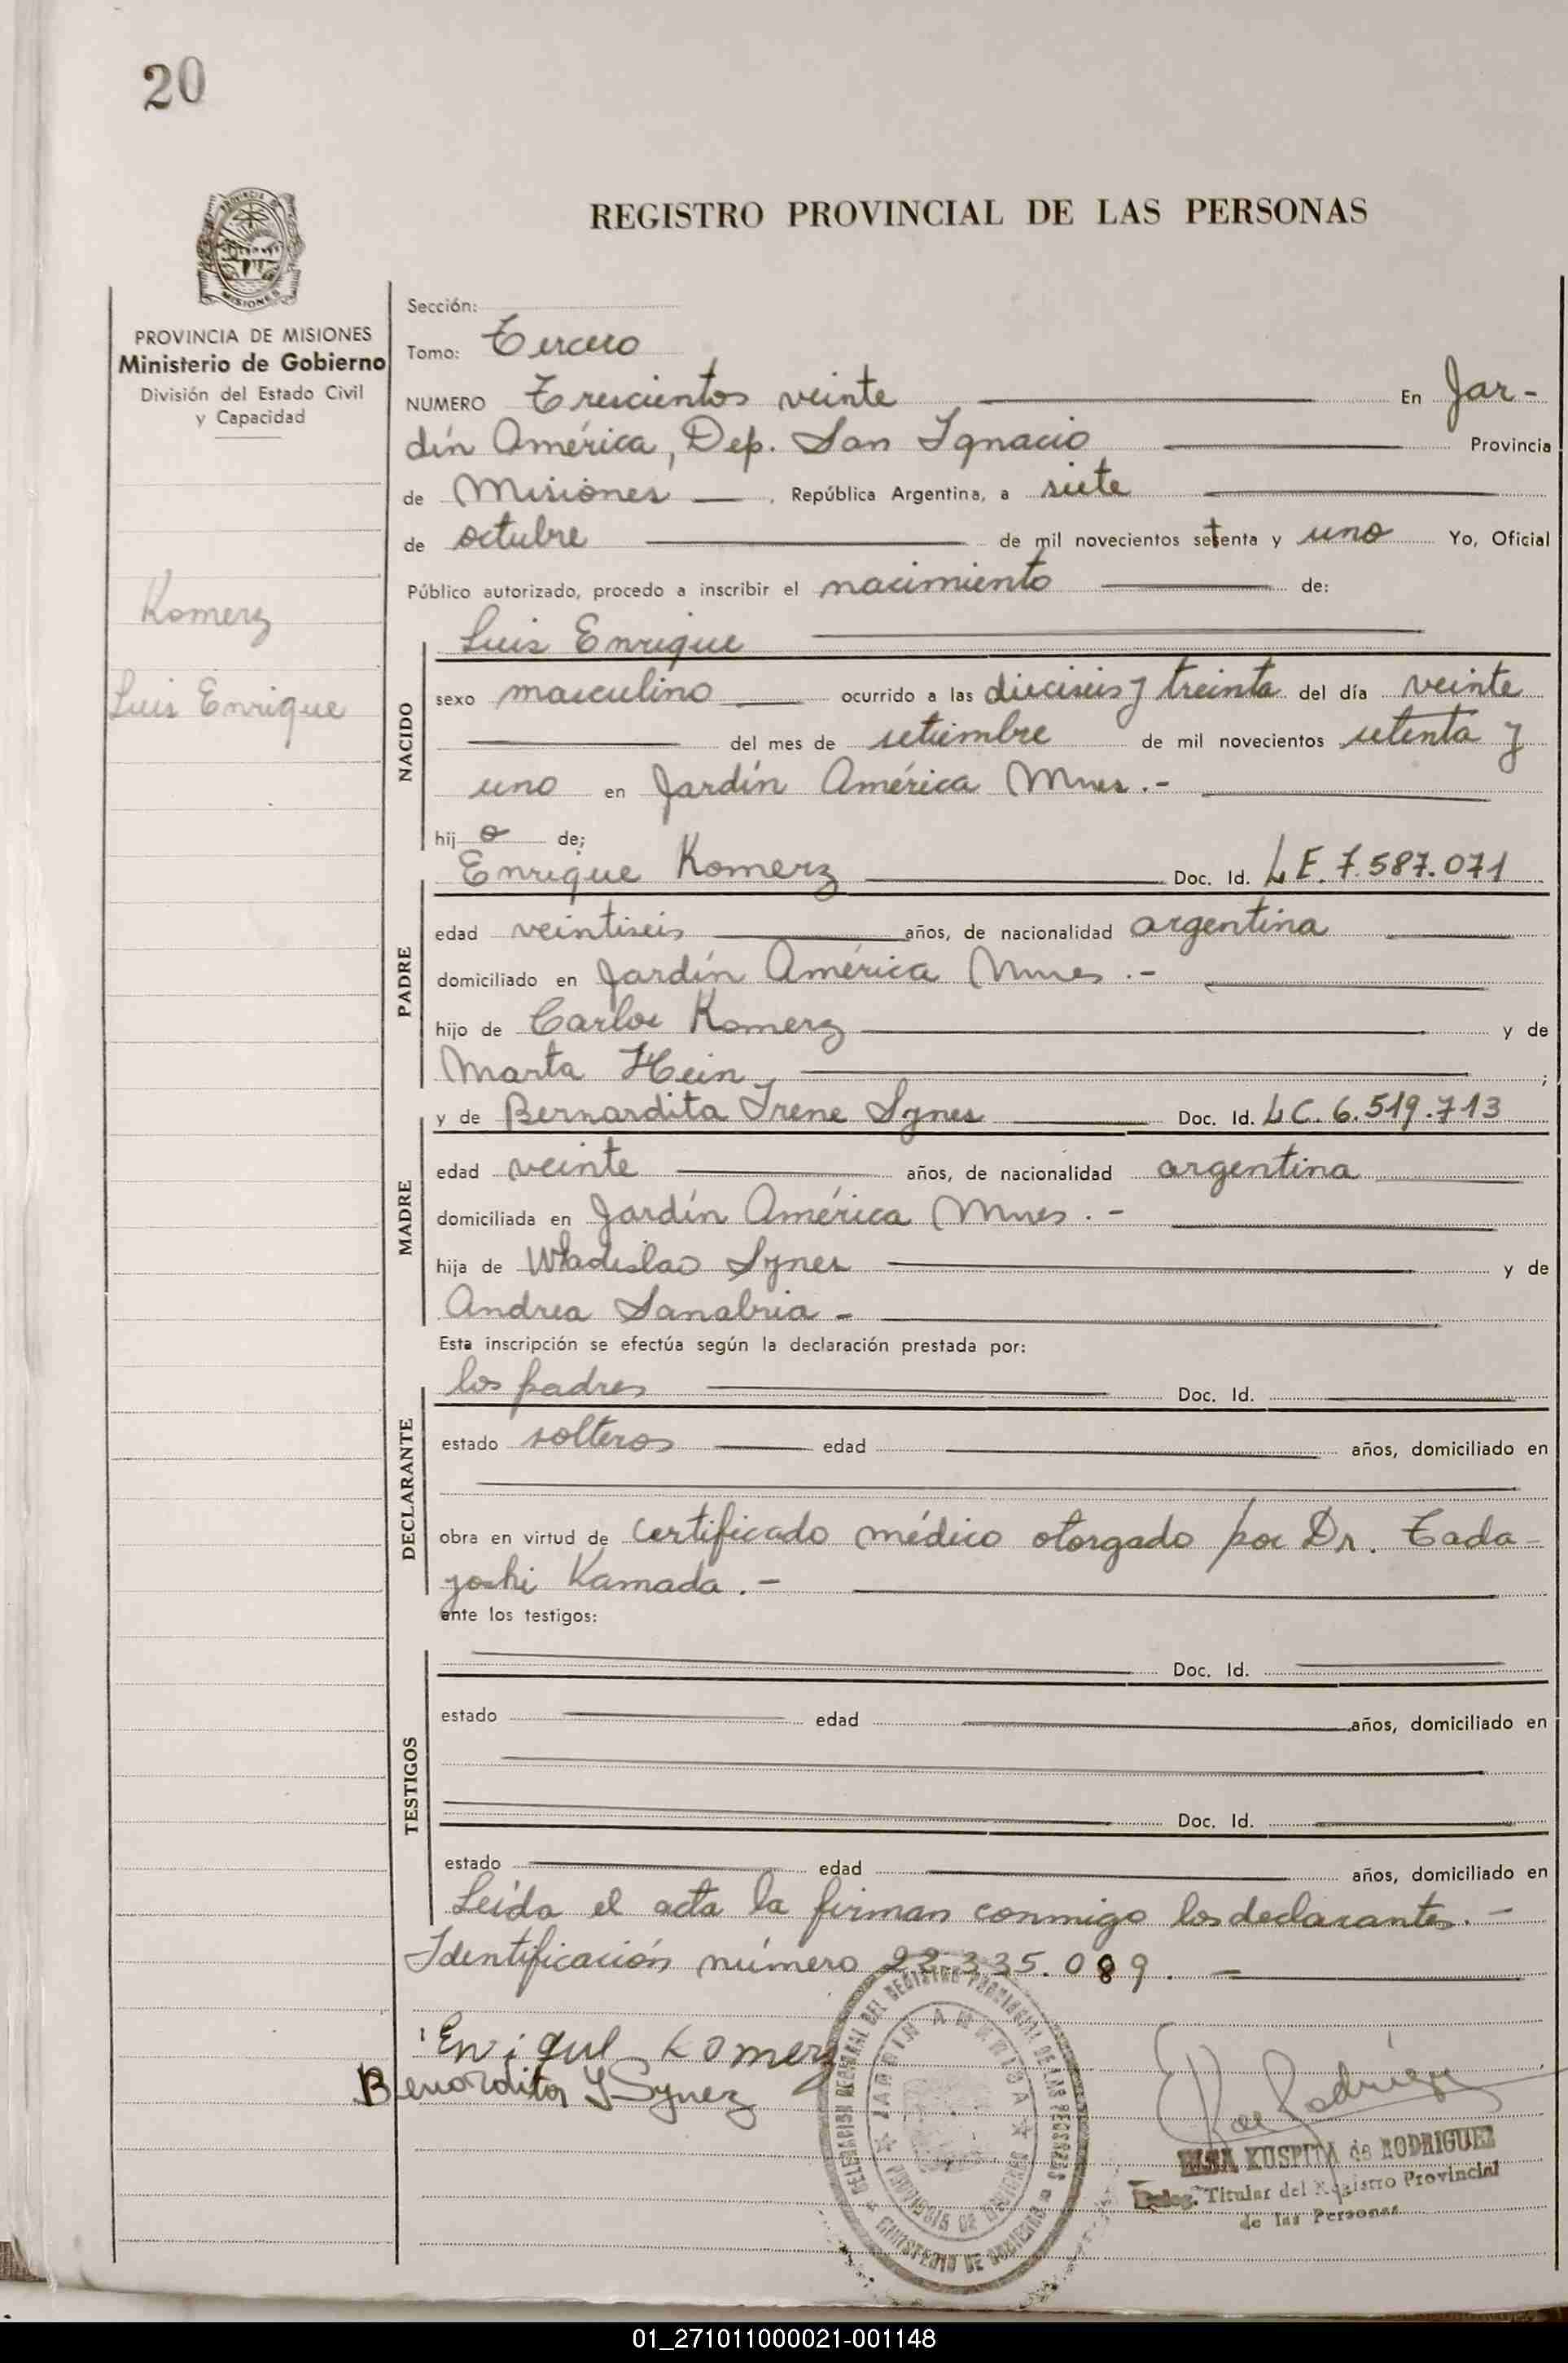 20
REGISTRO PROVINCIAL DE LAS PERSONAS
PROVINCIA DE MISIONES
Ministerio de Gobierno
División del Estado Civil
y Capacidad
Komerz
Luis Enrique
Sección:
Tomo: Tercero
NUMERO Trescientos veinte En Jar-
dín América, Dep. San Ignacio Provincia
de Misiones, República Argentina, a siete
de octubre de mil novecientos setenta y uno Yo, Oficial
Público autorizado, procedo a inscribir el nacimiento de:
NACIDO
Luis Enrique
sexo masculino ocurrido a las dieciseis y treinta del día veinte
del mes de setiembre de mil novecientos setenta y
uno en Jardín América Mnes.-
hijo de;
PADRE
Enrique Komerz Doc. Id. L E. 7.587.071
edad veintiseis años, de nacionalidad argentina
domiciliado en Jardín América Mnes.-
hijo de Carlos Komerz y de
Marta Hein ;
MADRE
y de Bernardita Irene Synes Doc. Id. L C. 6.519.713
edad veinte años, de nacionalidad argentina
domiciliada en Jardín América Mnes.-
hija de Wladislao Synes y de
Andrea Sanabria -
Esta inscripción se efectúa según la declaración prestada por:
DECLARANTE
los padres Doc. Id.
estado solteros edad años, domiciliado en
obra en virtud de certificado médico otorgado por Dr. Tada-
yoshi Kamada.-
ante los testigos:
TESTIGOS
Doc. Id.
estado edad años, domiciliado en
Doc. Id.
estado edad años, domiciliado en
Leída el acta la firman conmigo los declarantes.-
Identificación número 22.335.089.-
Enique Komerz
Benordita I Synez
DELEGACION REGIONAL DEL REGISTRO PROVINCIAL DE LAS PERSONAS
MINISTERIO DE GOBIERNO
JARDIN AMERICA
PROVINCIA DE MISIONES
ELSA KUSPITA de RODRIGUEZ
Deleg. Titular del Registro Provincial
de las Personas
01_271011000021-001148